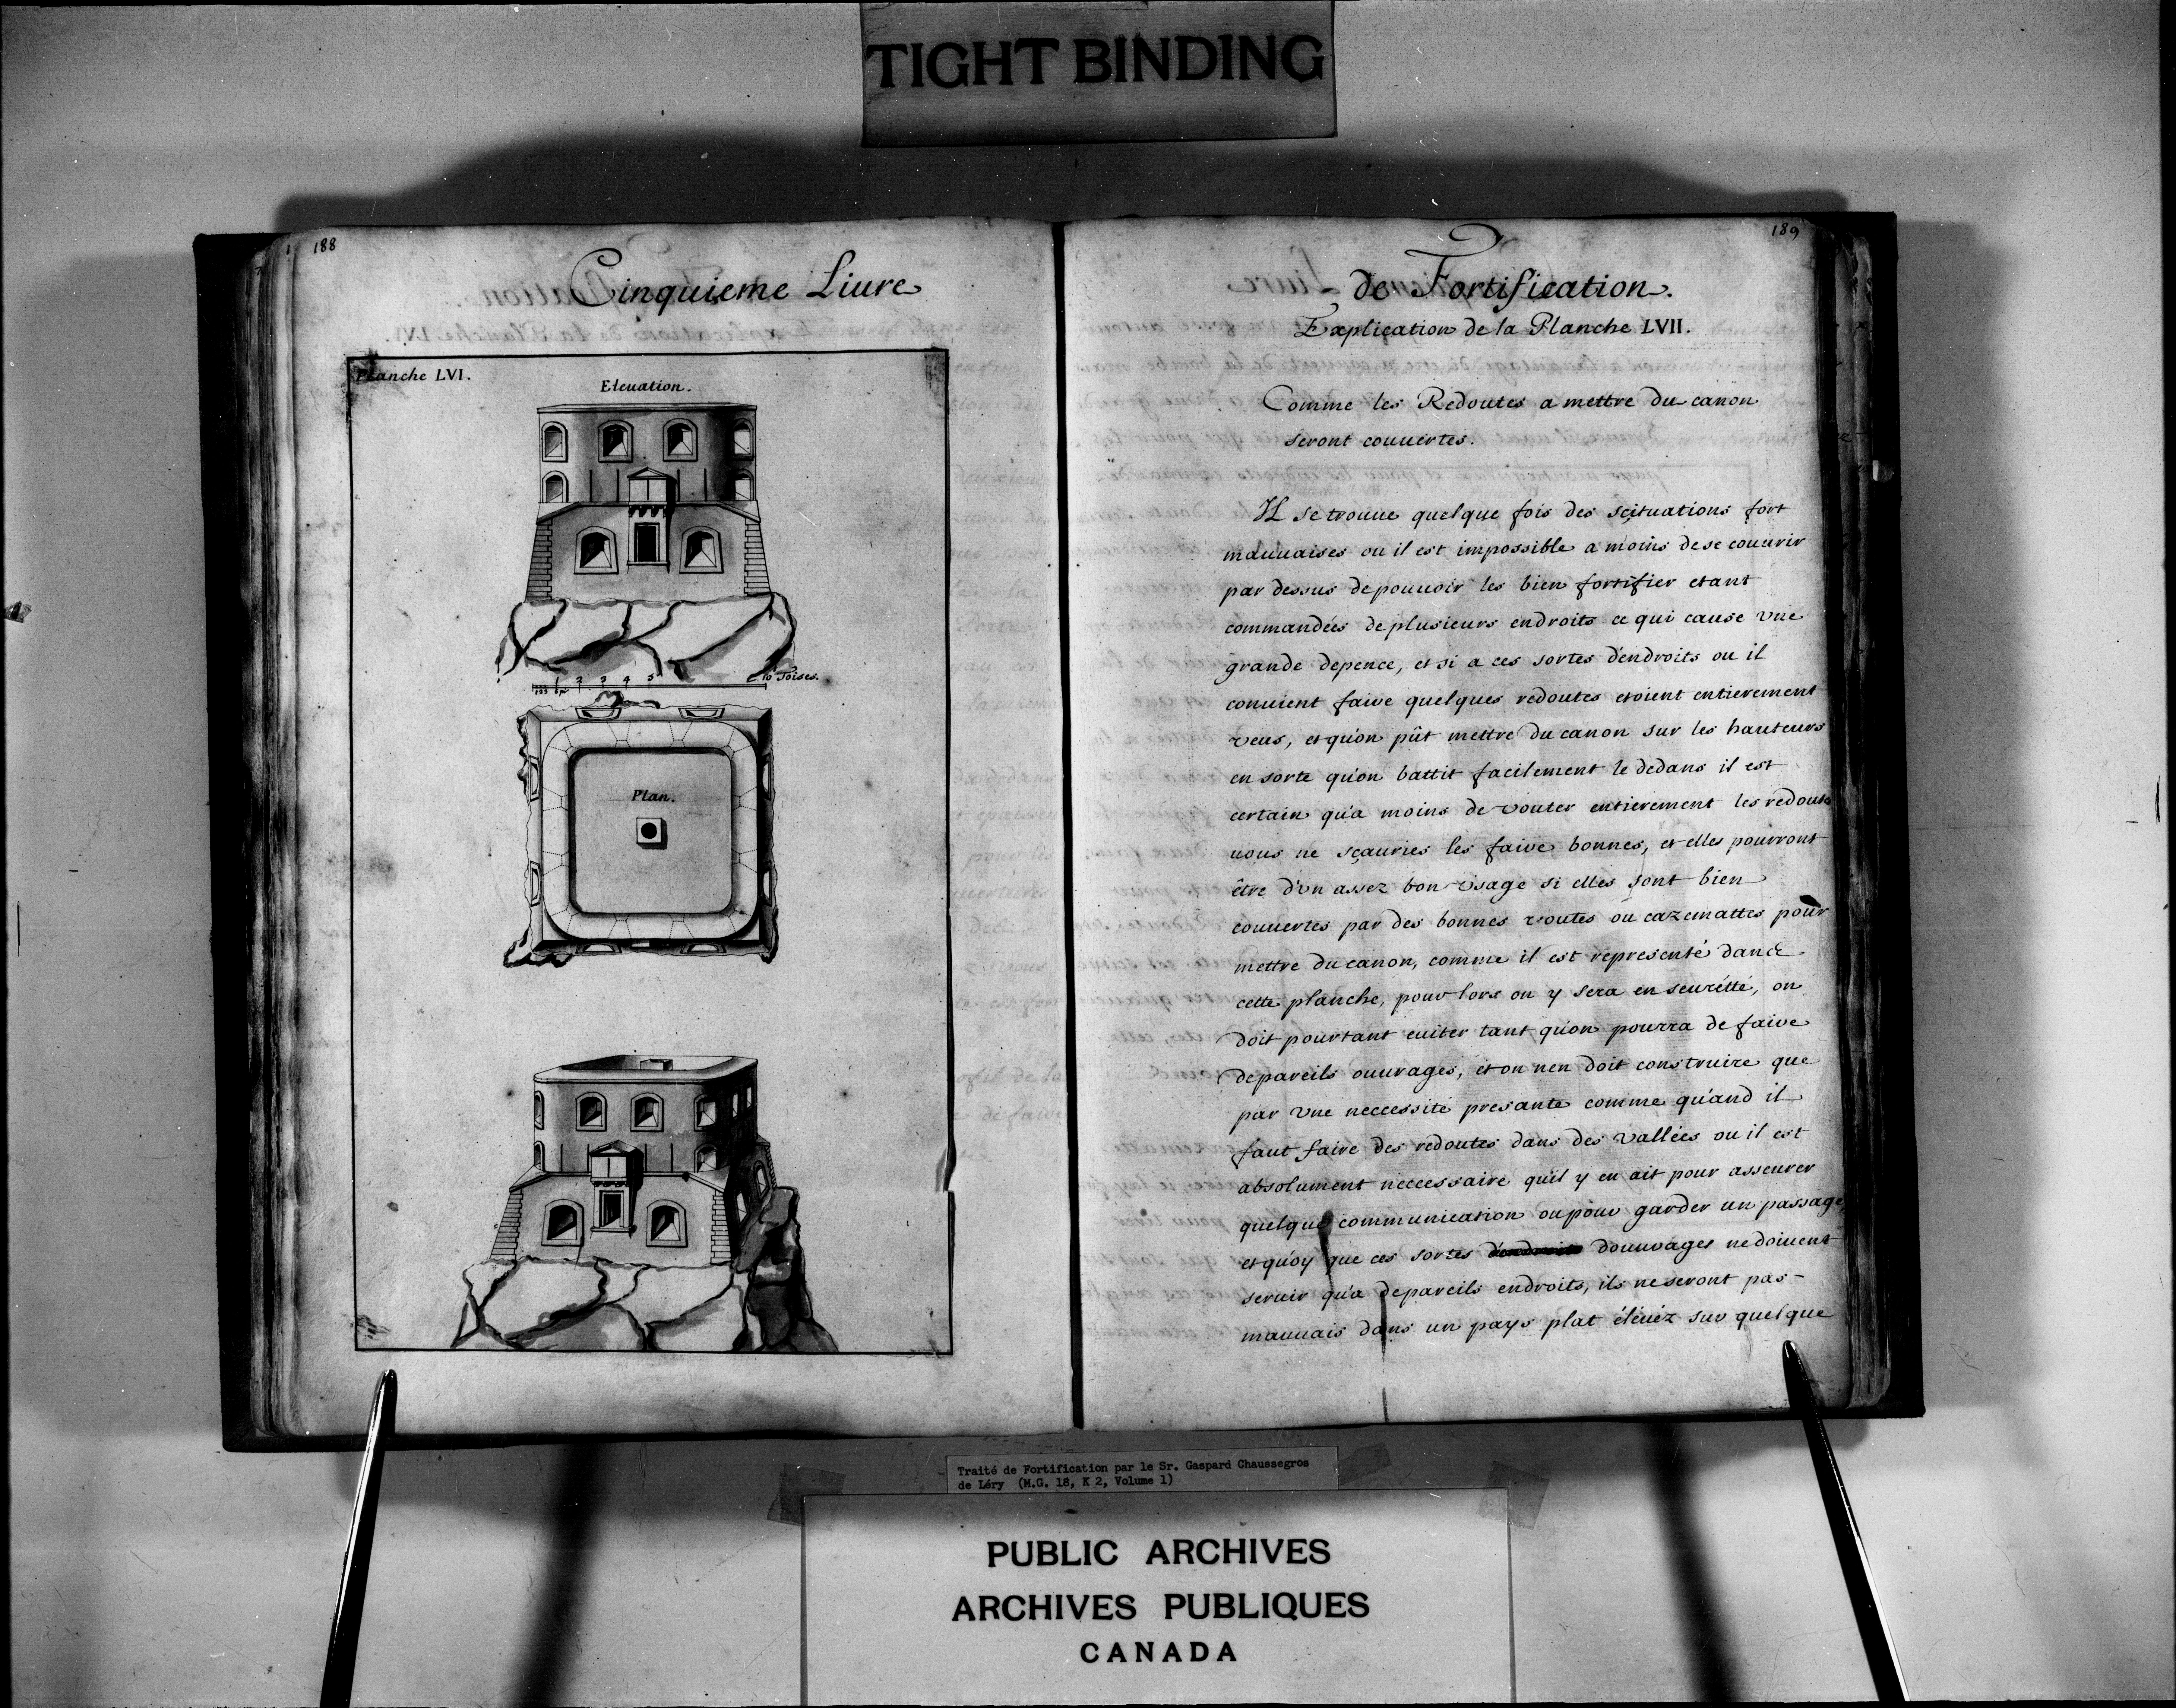 TIGHT BINDING
188
Cinquieme Liure
Planche LVI.
Eleuation.
1 2 3 4 5 10 Toises.
Plan.
189
de Fortification.
Explication de la Planche LVII.
Comme les Redoutes a mettre du canon
seront couuertes.
Il se trouue quelque fois des scituations fort
mauuaises ou il est impossible a moins de se couurir
par dessus de pouuoir les bien fortifier etant
commandées de plusieurs endroits ce qui cause vne
grande depence, et si a ces sortes d'endroits ou il
conuient faire quelques redoutes etoient entierement
veus, et qu'on pût mettre du canon sur les hauteurs
en sorte qu'on battit facilement le dedans il est
certain qu'a moins de vouter entierement les redoutes
uous ne sçauries les faire bonnes, et elles pourront
être d'vn assez bon vsage si elles sont bien
couuertes par des bonnes voutes ou cazemattes pour
mettre du canon, comme il est representé dance
cette planche, pour lors on y sera en seurétté, on
doit pourtant euiter tant qu'on pourra de faire
de pareils ouurages, et on nen doit construire que
par vne neccessité presante comme qu'and il
faut faire des redoutes dans des vallées ou il est
absolument neccessaire qu'il y en ait pour asseurer
quelque communication ou pour garder un passage,
et quoy que ces sortes d'endroits douurages ne doiuent
seruir qu'a de pareils endroits, ils ne seront pas
mauuais dans un pays plat éléuéz sur quelque
Traité de Fortification par le Sr. Gaspard Chaussegros
de Léry (M.G. 18, K 2, Volume 1)
PUBLIC ARCHIVES
ARCHIVES PUBLIQUES
CANADA